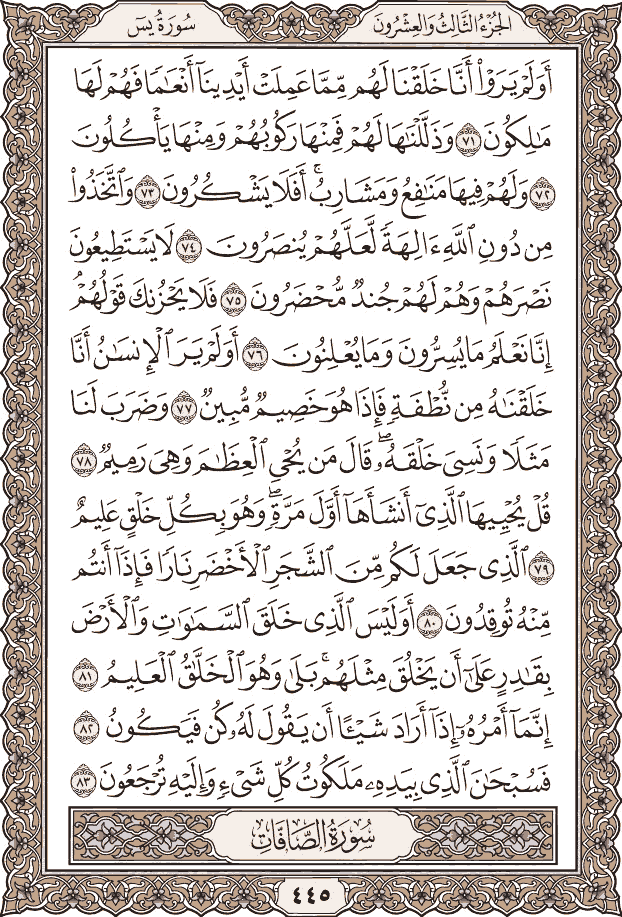 الجزء الثالث والعشرون
سورة يس
أَوَلَمْ يَرَوْا۟ أَنَّا خَلَقْنَا لَهُم مِّمَّا عَمِلَتْ أَيْدِينَآ أَنْعَٰمًا فَهُمْ لَهَا
مَٰلِكُونَ ٧١ وَذَلَّلْنَٰهَا لَهُمْ فَمِنْهَا رَكُوبُهُمْ وَمِنْهَا يَأْكُلُونَ
٧٢ وَلَهُمْ فِيهَا مَنَٰفِعُ وَمَشَارِبُ ۚ أَفَلَا يَشْكُرُونَ ٧٣ وَٱتَّخَذُوا۟
مِن دُونِ ٱللَّهِ ءَالِهَةً لَّعَلَّهُمْ يُنصَرُونَ ٧٤ لَا يَسْتَطِيعُونَ
نَصْرَهُمْ وَهُمْ لَهُمْ جُندٌ مُّحْضَرُونَ ٧٥ فَلَا يَحْزُنكَ قَوْلُهُمْ ۘ
إِنَّا نَعْلَمُ مَا يُسِرُّونَ وَمَا يُعْلِنُونَ ٧٦ أَوَلَمْ يَرَ ٱلْإِنسَٰنُ أَنَّا
خَلَقْنَٰهُ مِن نُّطْفَةٍ فَإِذَا هُوَ خَصِيمٌ مُّبِينٌ ٧٧ وَضَرَبَ لَنَا
مَثَلًا وَنَسِىَ خَلْقَهُۥ ۖ قَالَ مَن يُحْىِ ٱلْعِظَٰمَ وَهِىَ رَمِيمٌ ٧٨
قُلْ يُحْيِيهَا ٱلَّذِىٓ أَنشَأَهَآ أَوَّلَ مَرَّةٍ ۖ وَهُوَ بِكُلِّ خَلْقٍ عَلِيمٌ
٧٩ ٱلَّذِى جَعَلَ لَكُم مِّنَ ٱلشَّجَرِ ٱلْأَخْضَرِ نَارًا فَإِذَآ أَنتُم
مِّنْهُ تُوقِدُونَ ٨٠ أَوَلَيْسَ ٱلَّذِى خَلَقَ ٱلسَّمَٰوَٰتِ وَٱلْأَرْضَ
بِقَٰدِرٍ عَلَىٰٓ أَن يَخْلُقَ مِثْلَهُم ۚ بَلَىٰ وَهُوَ ٱلْخَلَّٰقُ ٱلْعَلِيمُ ٨١
إِنَّمَآ أَمْرُهُۥٓ إِذَآ أَرَادَ شَيْـًٔا أَن يَقُولَ لَهُۥ كُن فَيَكُونُ ٨٢
فَسُبْحَٰنَ ٱلَّذِى بِيَدِهِۦ مَلَكُوتُ كُلِّ شَىْءٍ وَإِلَيْهِ تُرْجَعُونَ ٨٣
سُورَةُ الصَّافَّاتِ
٤٤٥